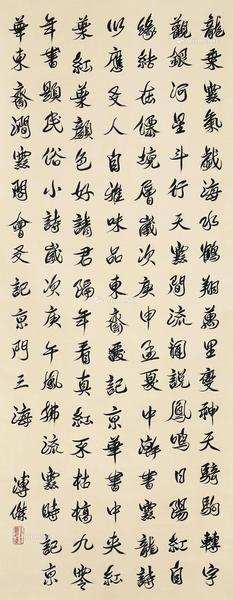 龍乘雲氣戲海水鶴翔萬里變神天騎駒轉宇
觀銀河星斗行天雲間流說鳳鳴日陽紅自
緣結在僊境層歲次庚申孟夏中澣書雲龍詩
以應友人自雅味品東齋記京華書中央紅
葉紅葉顏色好請君歸年看真紅不枯槁九零
年書顯民俗小詩歲次庚午風拂流雲時記京
華東齋澗雲閣會友記京門三海 溥傑